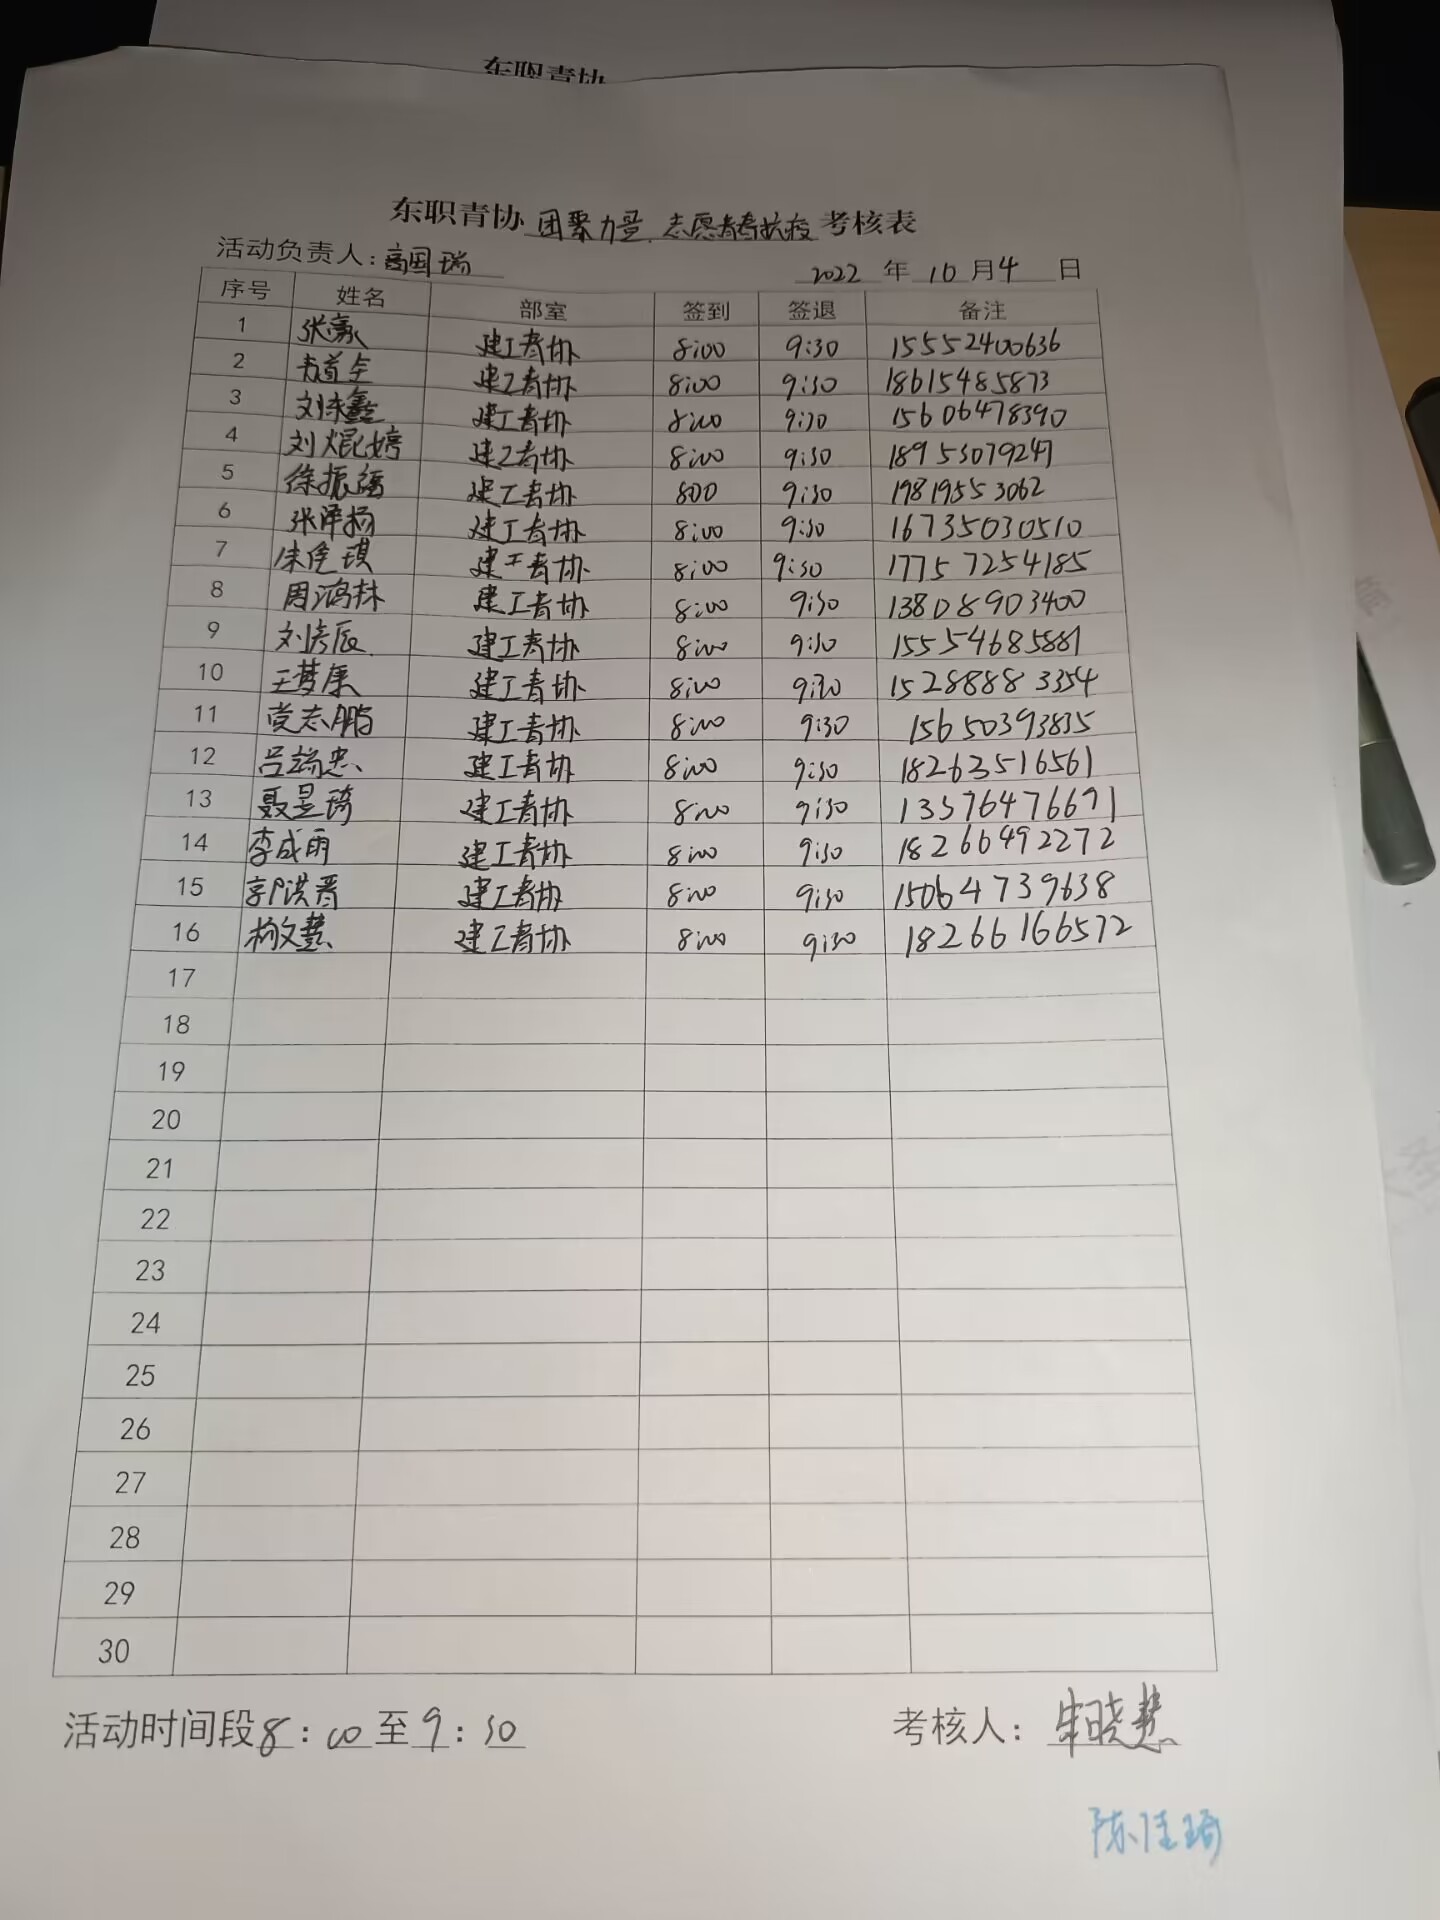 东职青协
东职青协 团聚力量 志愿青春抗疫 考核表
活动负责人：高国瑞 2022 年 10 月 4 日
序号 姓名 部室 签到 签退 备注
1 张豪 建工青协 8:00 9:30 15552400636
2 建工青协 8:00 9:30 18615485873
3 刘沫鑫 建工青协 8:00 9:30 15606478390
4 刘焜婷 建工青协 8:00 9:30 18953079247
5 徐振强 建工青协 800 9:30 19819553062
6 张泽杨 建工青协 8:00 9:30 16735030510
7 朱佳琪 建工青协 8:00 9:30 17757254185
8 周鸿林 建工青协 8:00 9:30 13808903400
9 刘彦辰 建工青协 8:00 9:30 15554685881
10 王梦康 建工青协 8:00 9:30 15288883354
11 党志鹏 建工青协 8:00 9:30 15650393835
12 吕端忠 建工青协 8:00 9:30 18263516561
13 聂昱琦 建工青协 8:00 9:30 13576476671
14 李成雨 建工青协 8:00 9:30 18266492272
15 郭洪晋 建工青协 8:00 9:30 15064739638
16 杨文慧 建工青协 8:00 9:30 18266166572
17
18
19
20
21
22
23
24
25
26
27
28
29
30
活动时间段 8：00 至 9：30 考核人：朱晓慧
陈佳琦